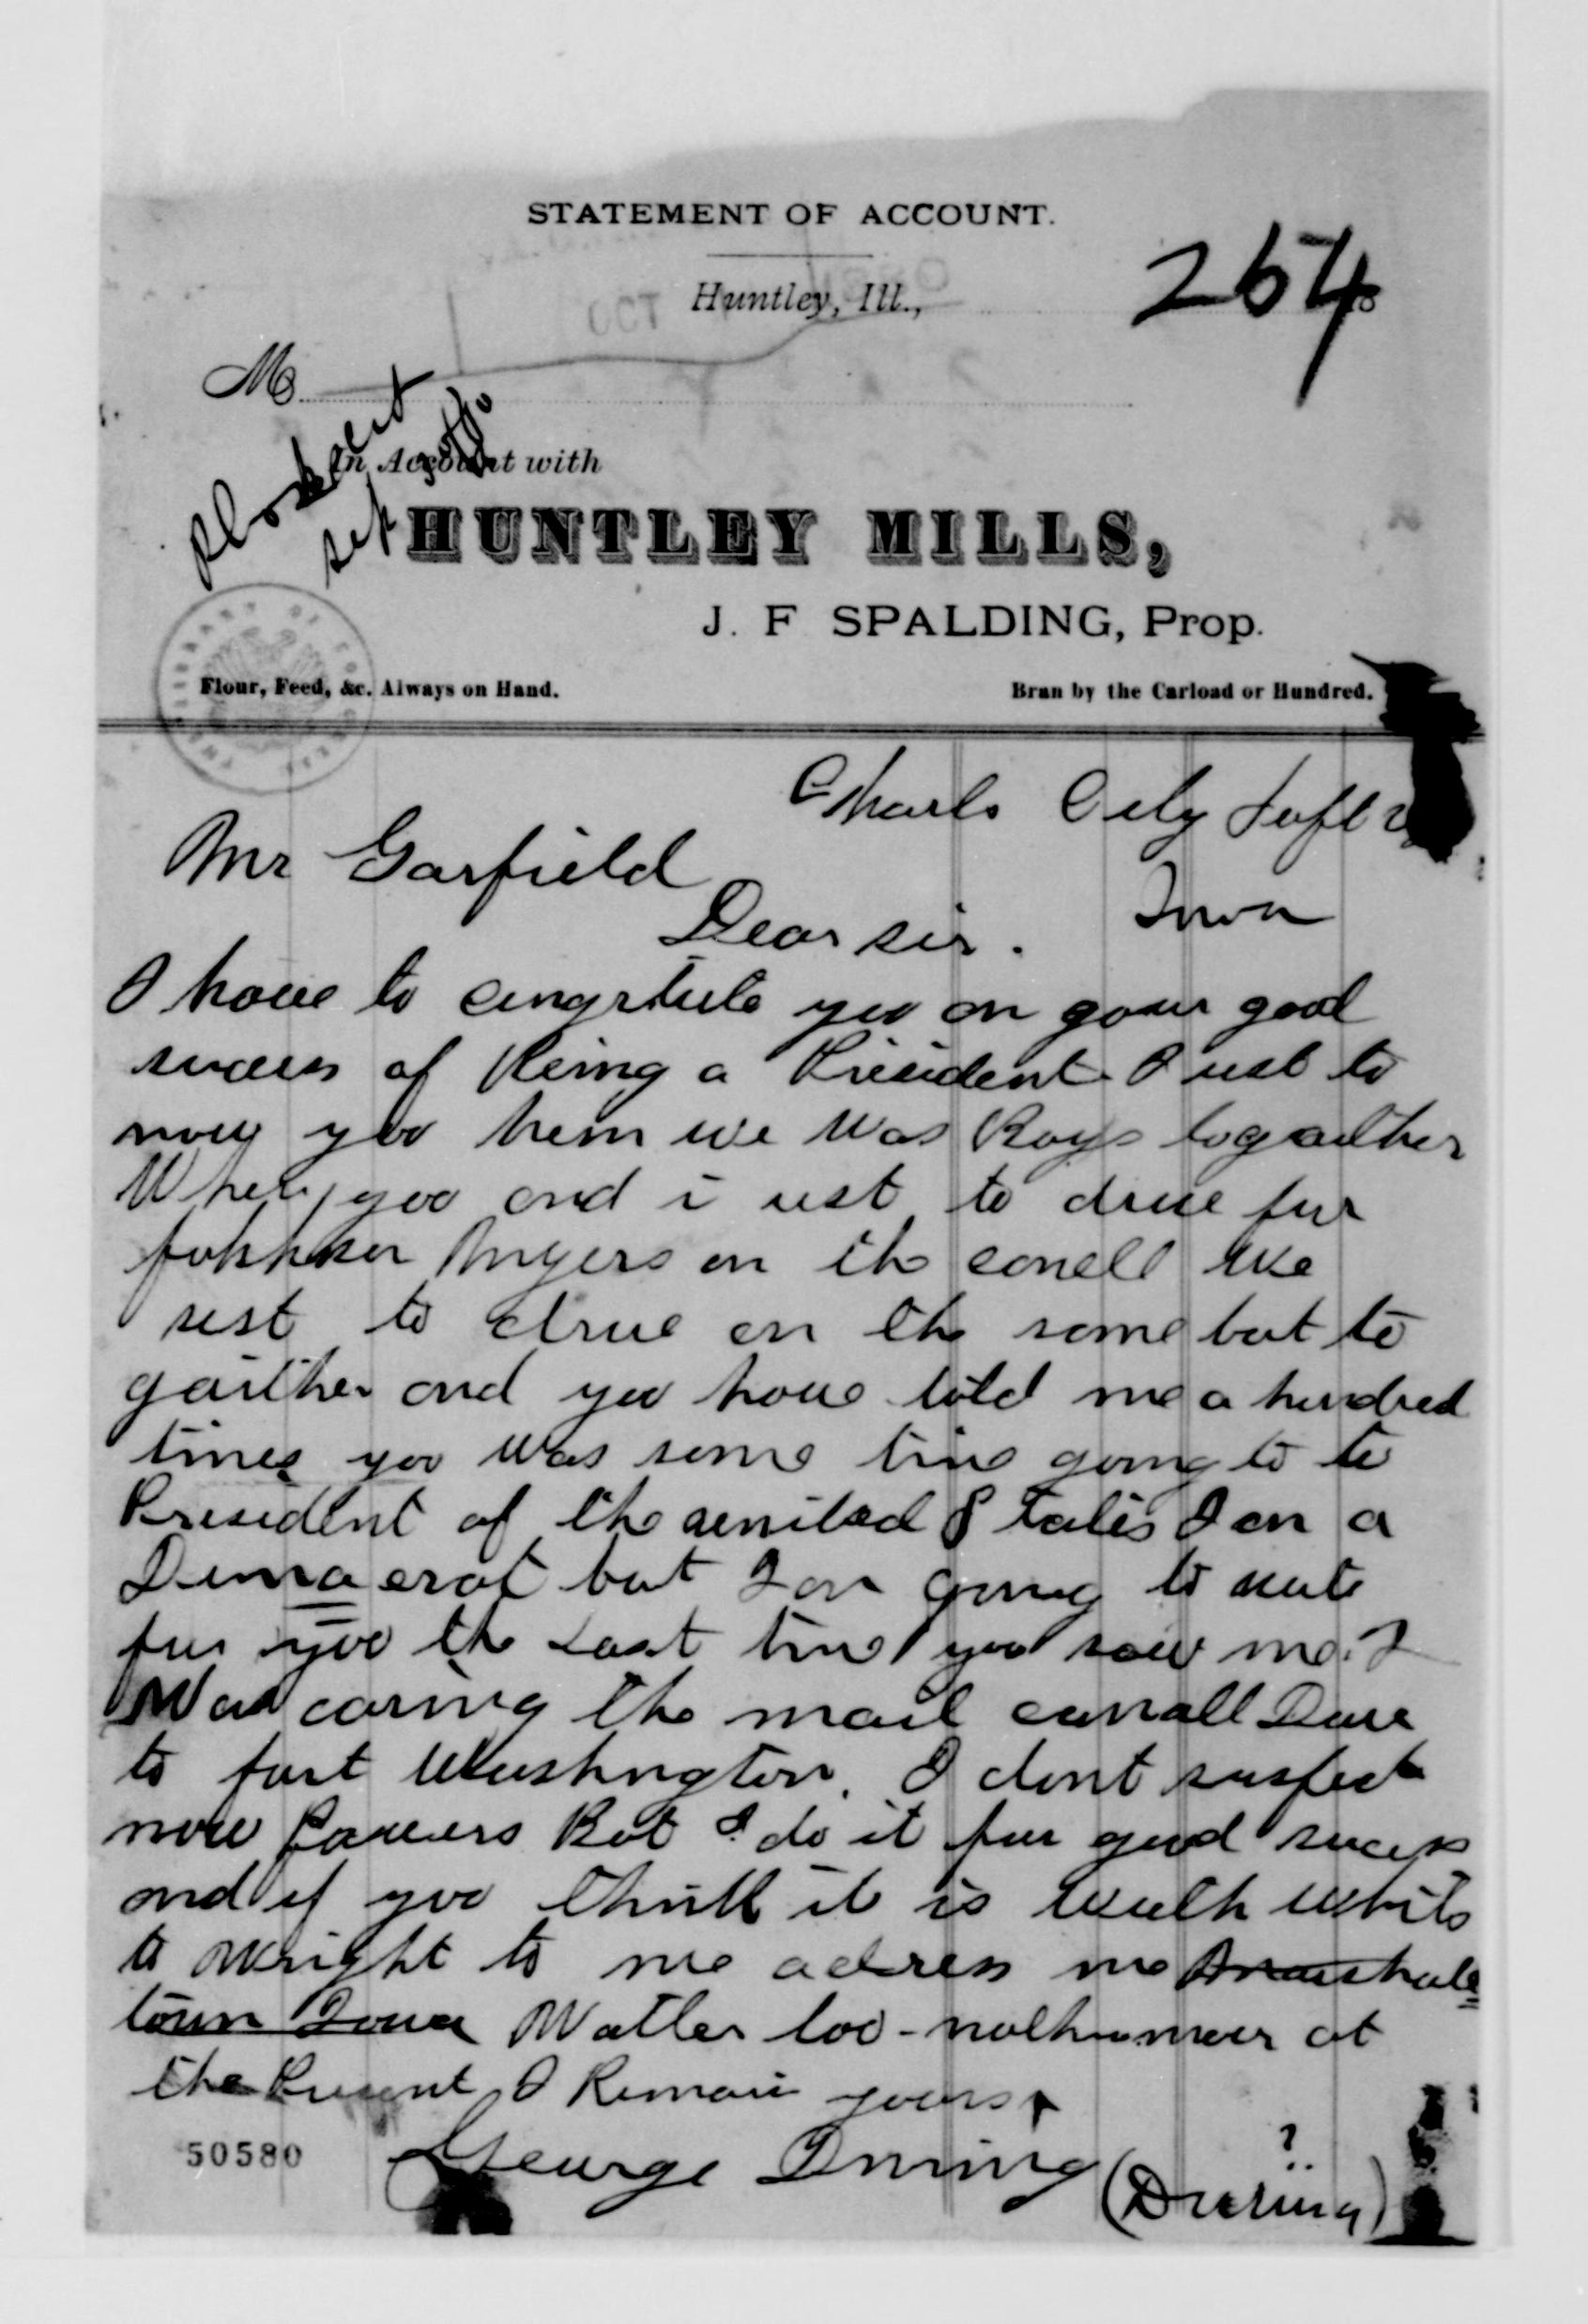 STATEMENT OF ACCOUNT.
Huntley, Ill.,
264
M
In Account with
HUNTLEY MILLS,
J. F SPALDING, Prop.
Flour, Feed, &c. Always on Hand.
Bran by the Carload or Hundred.
Charls City
Iowa
Mr Garfield
Dear sir.
I have to you on your good
sucess of Being a President I ust to
yoo we Was Boys togaither
When yoo and i ust to drive fur
Myers on the canell We
ust to drive on the same bot to
gaither and yoo have told me a hundred
times yoo was some time going to be
President of the united States I am a
Dimacrat but I am going to vote
fur yoo the Last time yoo saw me. I
Was caring the mail
to fort Washington. I dont
now Bot I do it fur good sucess
and if yoo think it is while
to Wright to me adress me Marshale
town Iowa Watter loo at
the Present I Remain yours
George
50580
?